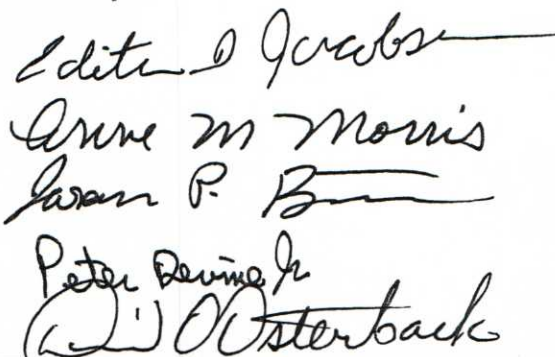 Edith D Jacobsen
Anne M Morris
Jason P.
Peter Devine Jr
O Osterback